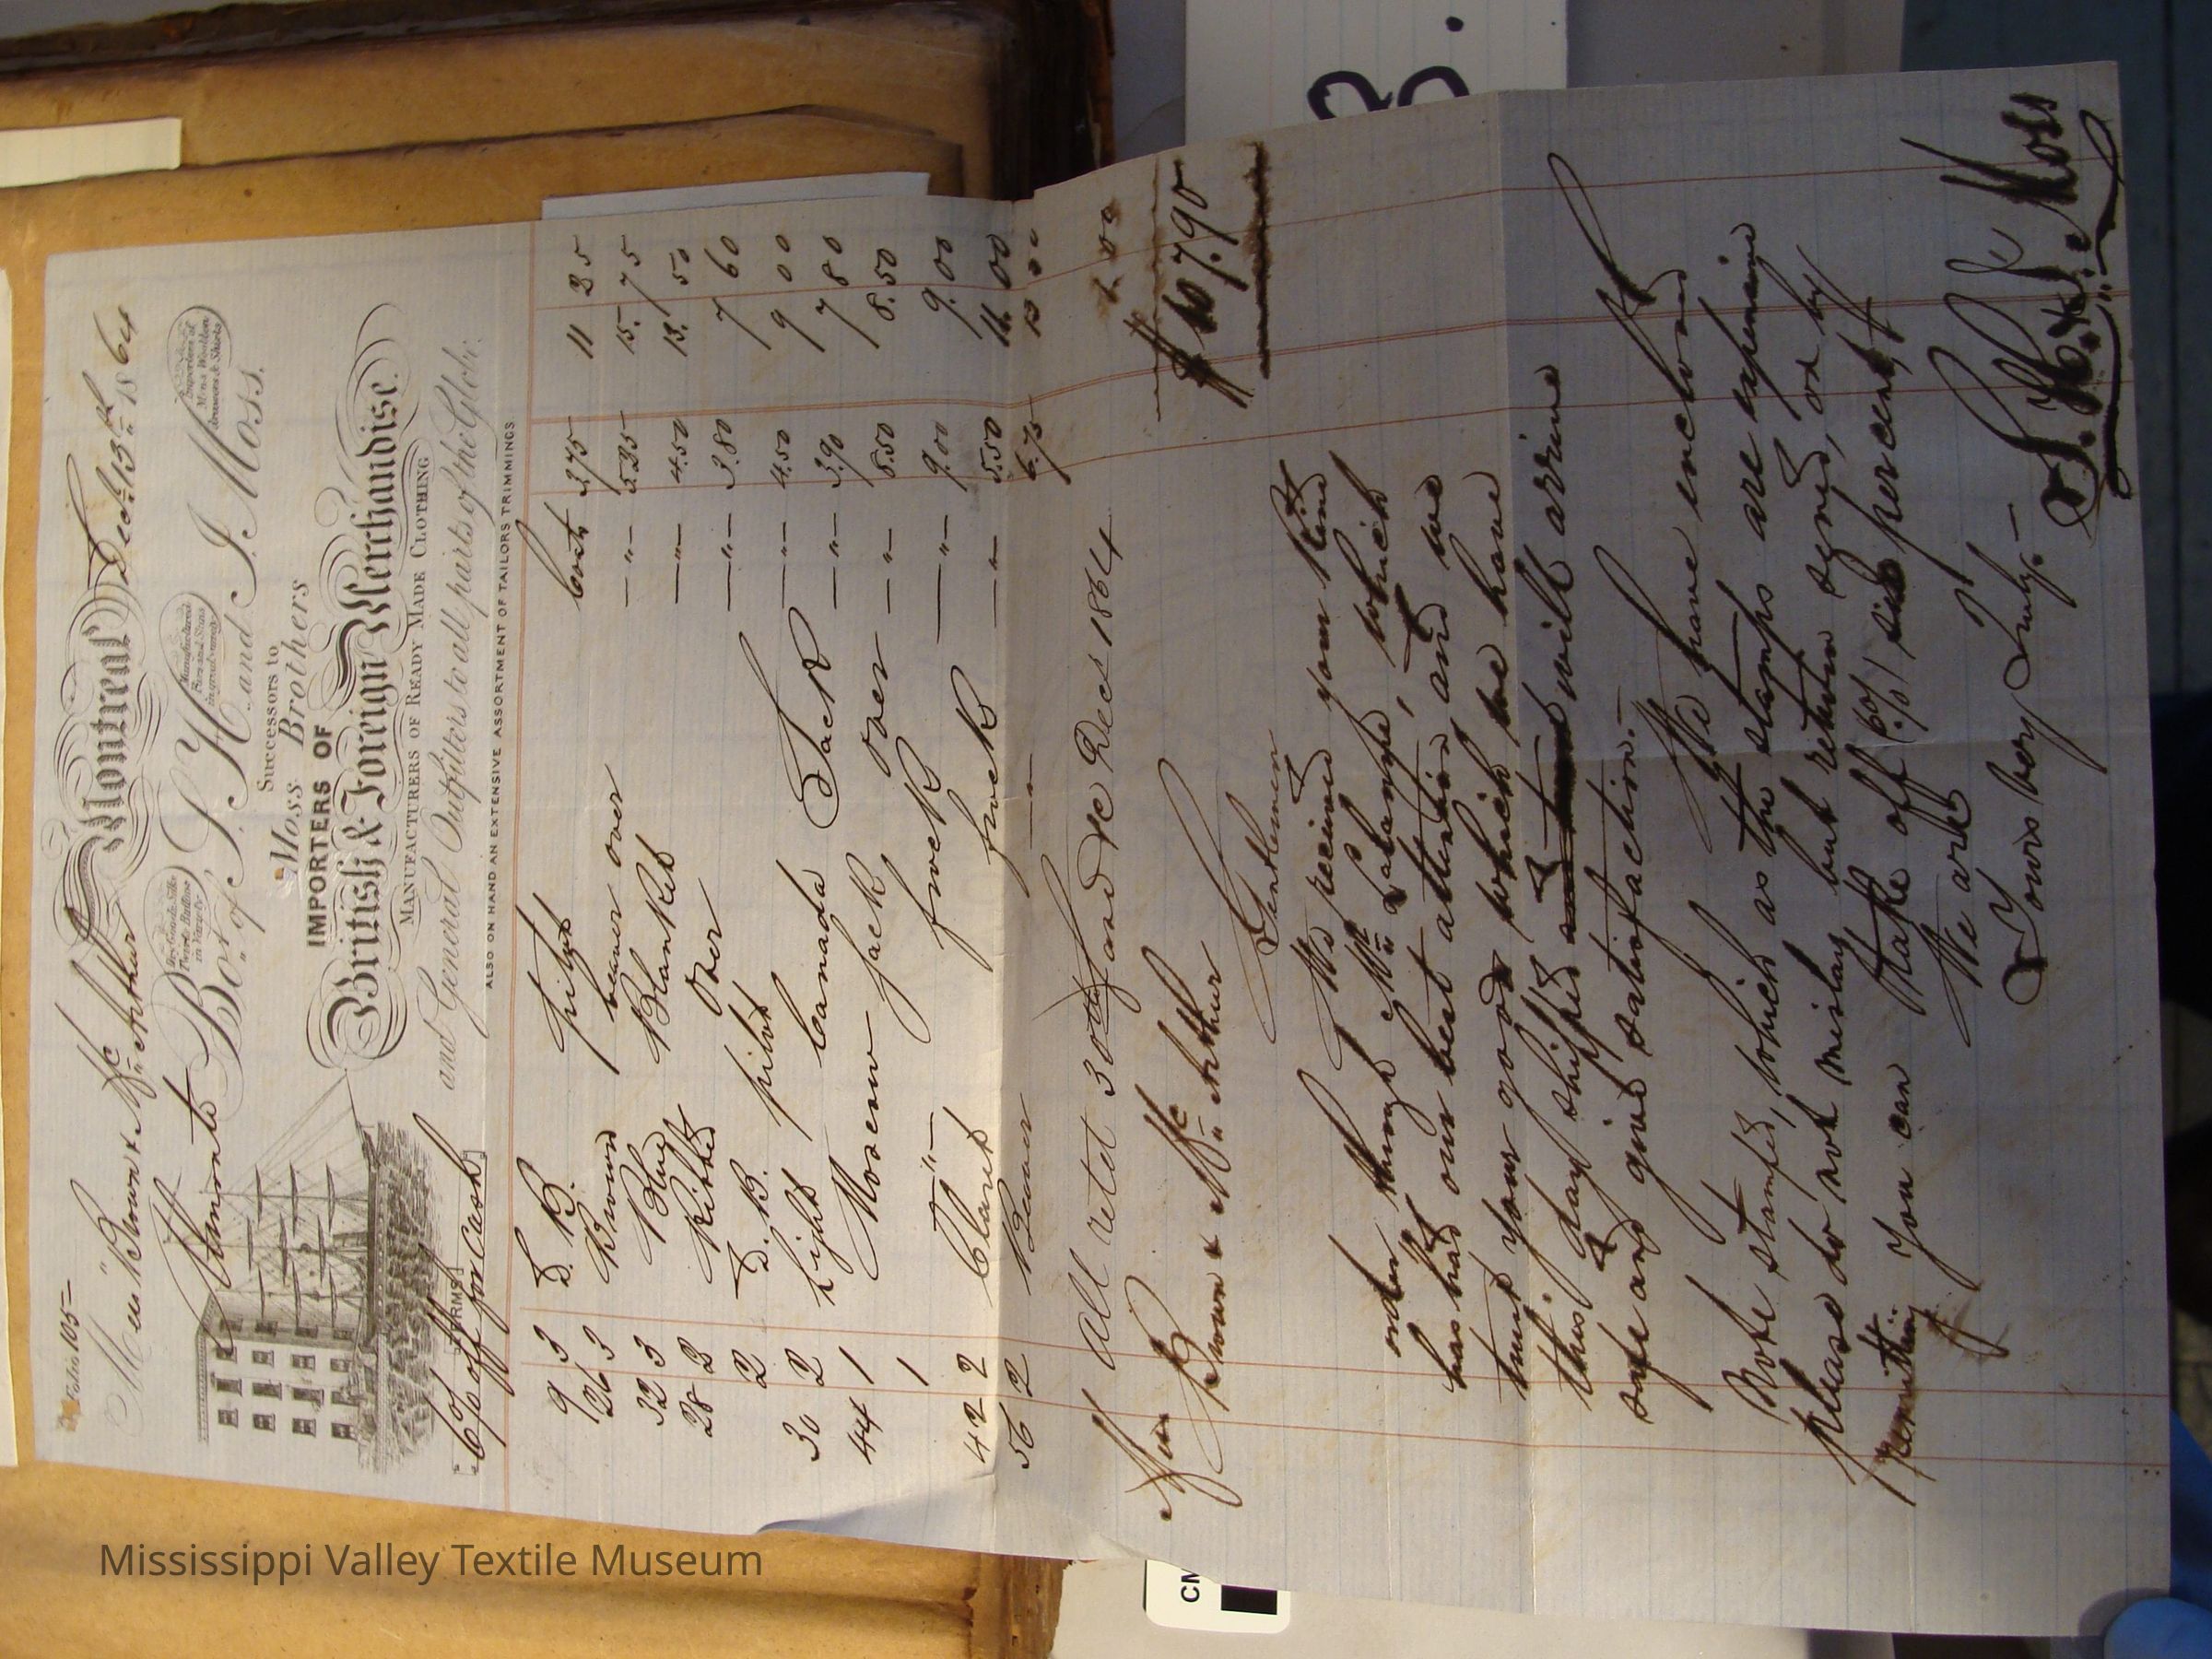 Folio 105
Montreal Dect 13th 1864
Messrs Brown & McArthur
Almonte
Dry Goods, Silks
in Variety
Manufactured
Importers of
Mens Woollen
drawers & Shirts
Bot of S. H. and J. Moss.
Successors to
Moss Brothers
IMPORTERS OF
British & Foreign Merchandise.
MANUFACTURERS OF READY MADE CLOTHING
and General Outfitters to all parts of the Globe.
TERMS
6% off for Cash
ALSO ON HAND AN EXTENSIVE ASSORTMENT OF TAILORS TRIMMINGS
9 3 D. B. pilot Coats 3.75 11 25
26 3 Brown beaver over —"— 5.25 15. 75
32 3 Blue Blanket —"— 4.50 13. 50
28 2 Ribbed over —"— 3.80 7 60
2 D. B. pilot —"— 4.50 9 00
30 2 Light Canada Sack —"— 3.90 7 80
44 1 Moscow Sack over —"— 8.50 8.50
1 —"— frock —"— 9.00 9.00
42 2 Claret frock —"— 5.50 11 00
56 2 Beaver —"— 6.75 13
$107.90
Messrs Brown & McArthur
Gentlemen
We received your kind
order through Mr Latampe, which
has had our best attention, and we
trust your goods which we have
this day shipped will arrive
safe and give satisfaction.—
We have enclosed
Note stamped, which as the stamps are expensive
please do not mislay but return signed, or by
remitting you can take off 6% six percent
We are
Yours very truly.—
S. H. & J. Moss
Mississippi Valley Textile Museum